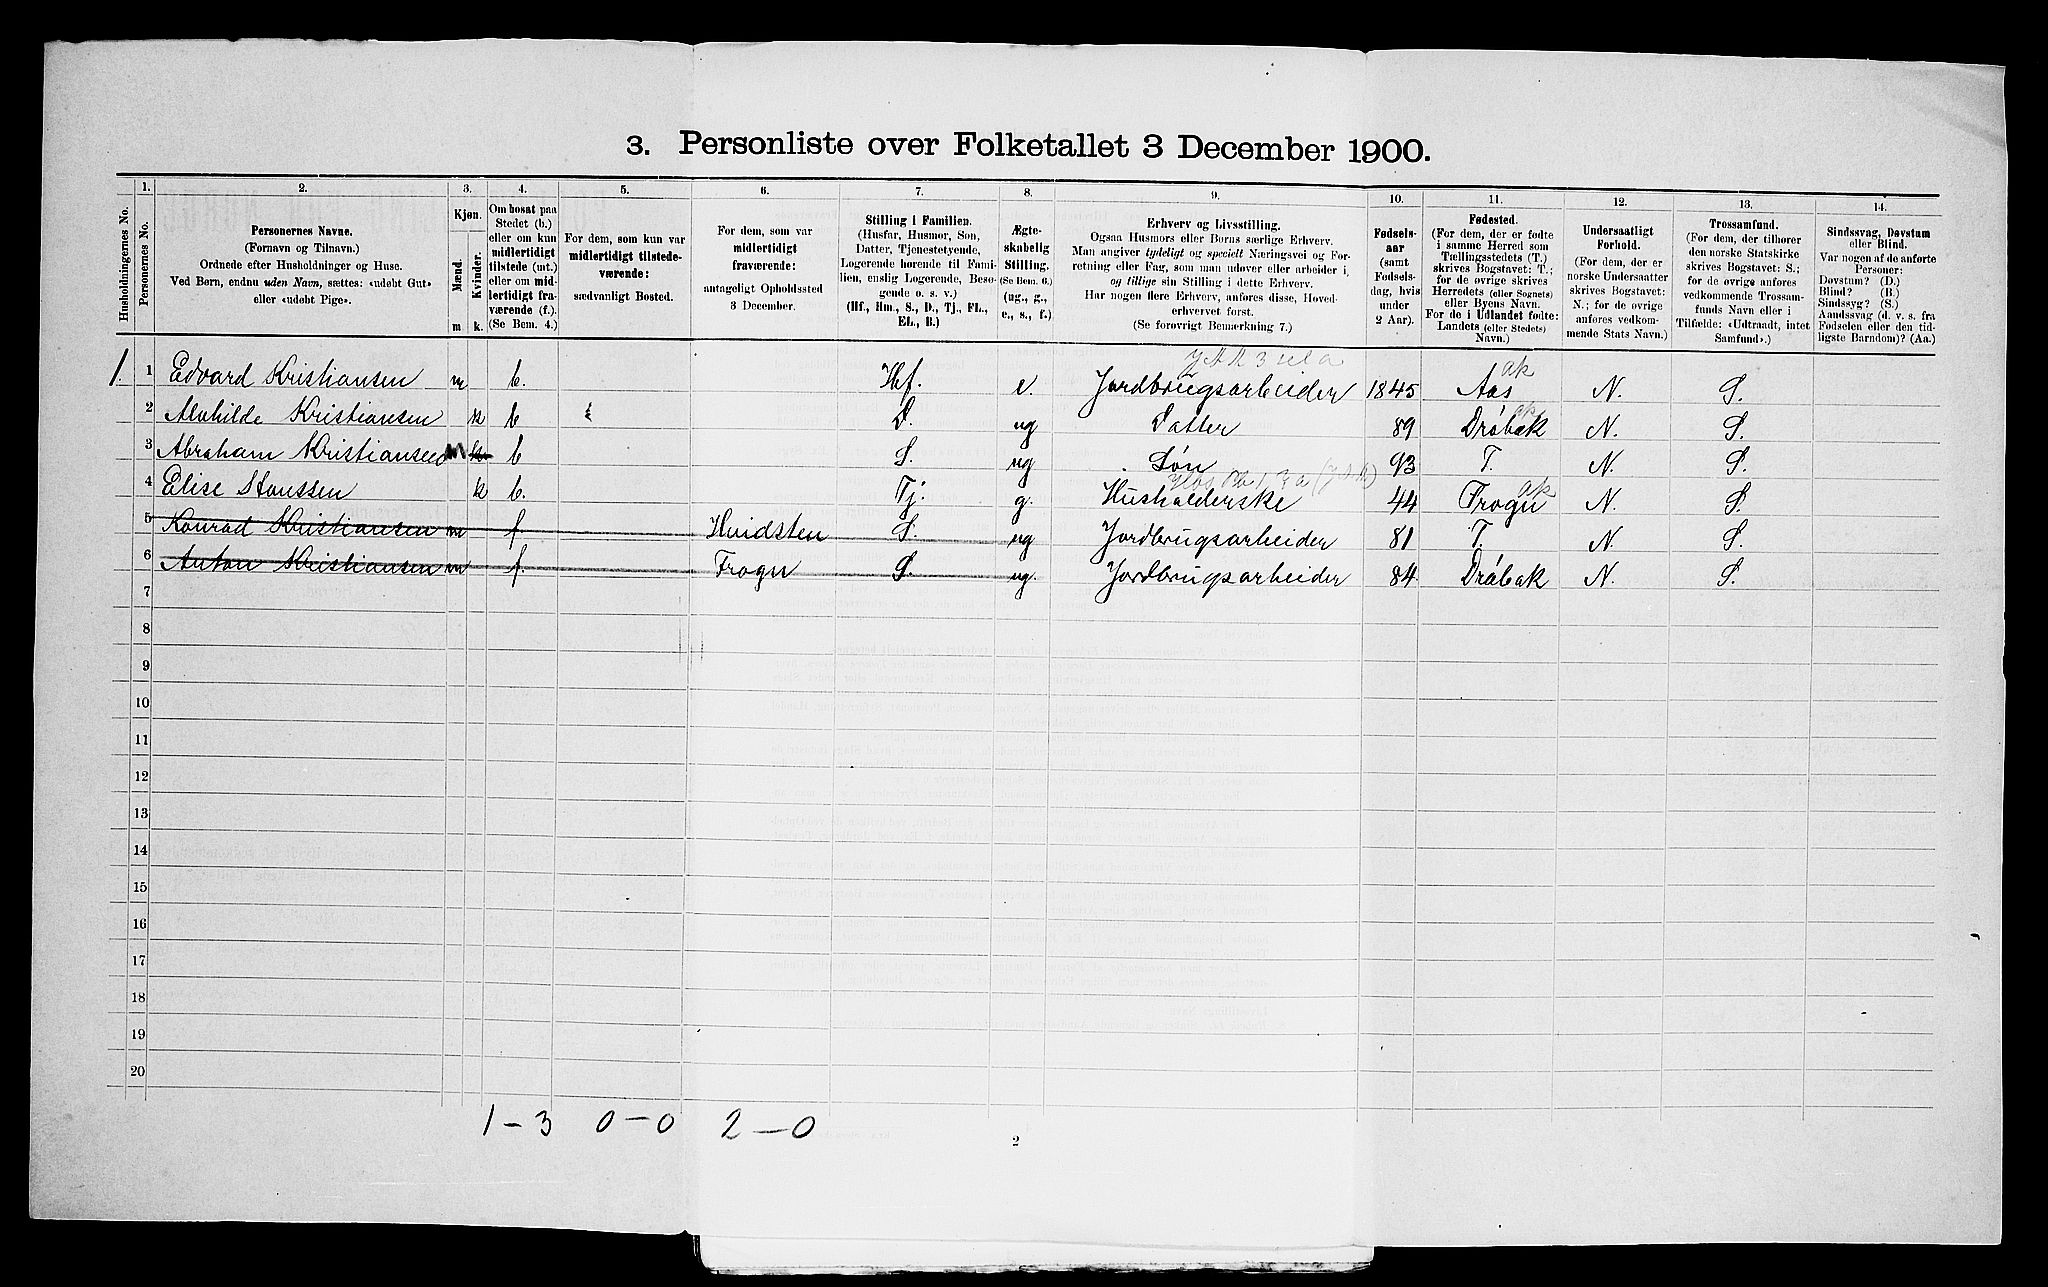 3. Personliste over Folketallet 3 December 1900.
1. 2. 3. 4. 5. 6. 7. 8. 9. 10. 11. 12. 13. 14.
Husholdningernes No.
Personernes No.
Personernes Navne.
(Fornavn og Tilnavn.)
Ordnede efter Husholdninger og Huse.
Ved Børn, endnu uden Navn, sættes: «udøbt Gut»
eller «udøbt Pige».
Kjøn.
Mænd.
Kvinder.
m k.
Om bosat paa
Stedet (b.)
eller om kun
midlertidigt
tilstede (mt.)
eller om mid-
lertidigt fra-
værende (f.).
(Se Bem. 4.)
For dem, som kun var
midlertidigt tilstede-
værende:
sædvanligt Bosted.
For dem, som var
midlertidigt
fraværende:
antageligt Opholdssted
3 December.
Stilling i Familien.
(Husfar, Husmor, Søn,
Datter, Tjenestetyende,
Logerende hørende til Fami-
lien, enslig Logerende, Besø-
gende o. s. v.)
(Hf., Hm., S., D., Tj., FL.,
EL., B.)
Ægte-
skabelig
Stilling.
(Se Bem. 6.)
(ug., g.,
e., s., f.)
Erhverv og Livsstilling.
Ogsaa Husmors eller Børns særlige Erhverv.
Man angiver tydeligt og specielt Næringsvei og For-
retning eller Fag, som man udøver eller arbeider i,
og tillige sin Stilling i dette Erhverv.
Har nogen flere Erhverv, anføres disse, Hoved-
erhvervet forst.
(Se forøvrigt Bemærkning 7.)
Fødsels-
aar
(samt
Fødsels-
dag, hvis
under
2 Aar).
Fødested.
(For dem, der er fødte
i samme Herred som
Tællingsstedets (T.)
skrives Bogstavet: T.;
for de øvrige skrives
Herredets (eller Sognets)
eller Byens Navn.
For de i Udlandet fødte:
Landets (eller Stedets)
Navn.)
Undersaatligt
Forhold.
(For dem, der er
norske Undersaatter
skrives Bogstavet:
N.; for de øvrige
anføres vedkom-
mende Stats Navn.)
Trossamfund.
(For dem, der tilhører
den norske Statskirke
skrives Bogstavet: S.;
for de øvrige anføres
vedkommende Trossam-
funds Navn eller i
Tilfælde: «Udtraadt, intet
Samfund».)
Sindssvag, Døvstum
eller Blind.
Var nogen af de anførte
Personer:
Døvstum? (D.)
Blind? (B.)
Sindssyg? (S.)
Aandssvag (d. v. s. fra
Fødselen eller den tid-
ligste Barndom)? (Aa.)
1. 1 Edvard Kristiansen m b. Hf. e. Jordbrugsarbeider 1845 Aas ak N. S.
2 Alvhilde Kristiansen k b D. ug Datter 89 Drøbak ak N. S.
3 Abraham Kristiansen m b S. ug Søn 93 T. N. S.
4 Elise Hanssen k b. Tj. g. Husholderske 44 Frogn ak N. S.
5 Konrad Kristiansen m f Hvidsten S. ug Jordbrugsarbeider 81 T. N. S.
6 Anton Kristiansen m f. Frogn S. ug. Jordbrugsarbeider 84 Drøbak N. S.
7
8
9
10
11
12
13
14
15
16
17
18
19
20
1 – 3 0 – 0 2 – 0
2